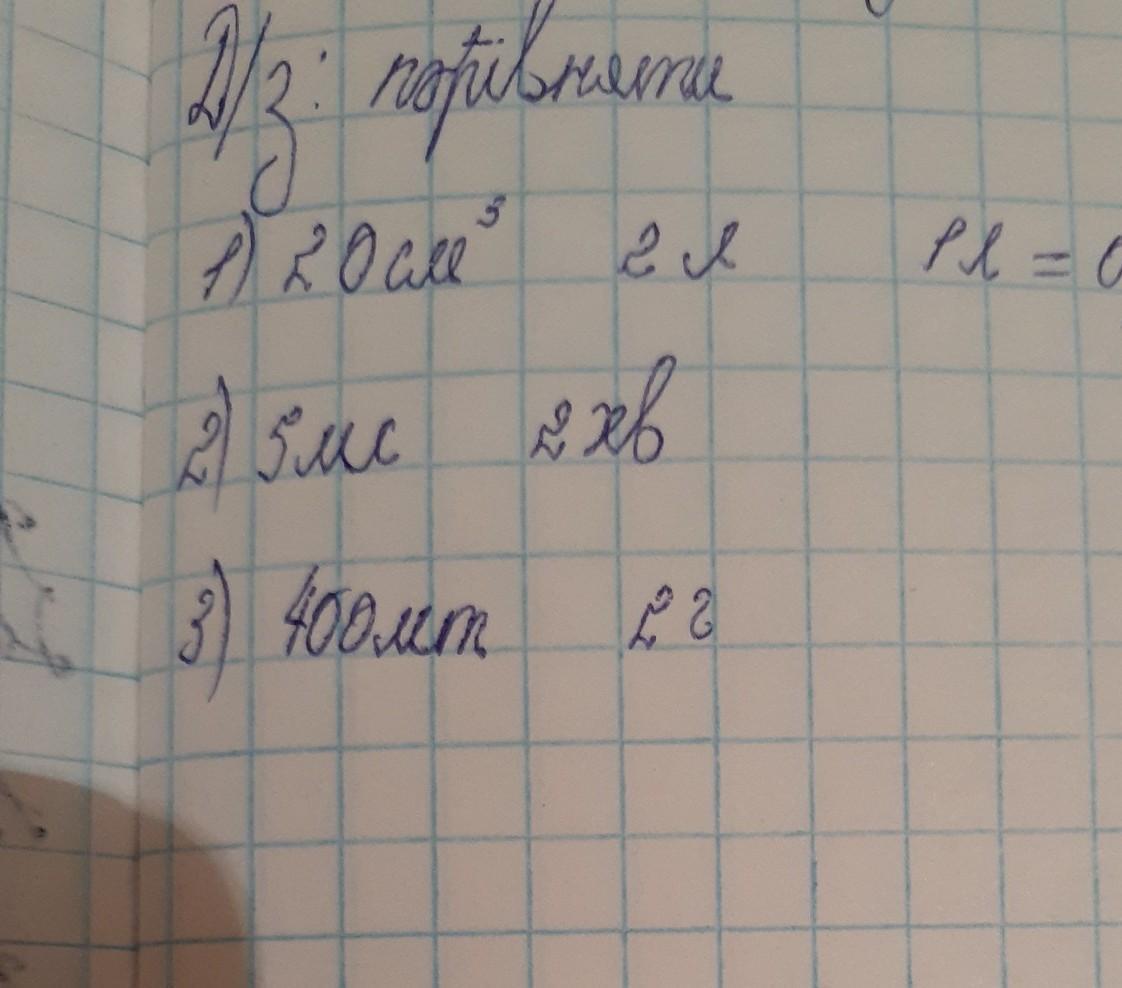 Д/з: порівняти
1) 20 см³ 2 л 1 л = 0
2) 5 мс 2 хв
3) 400 мг 2 г